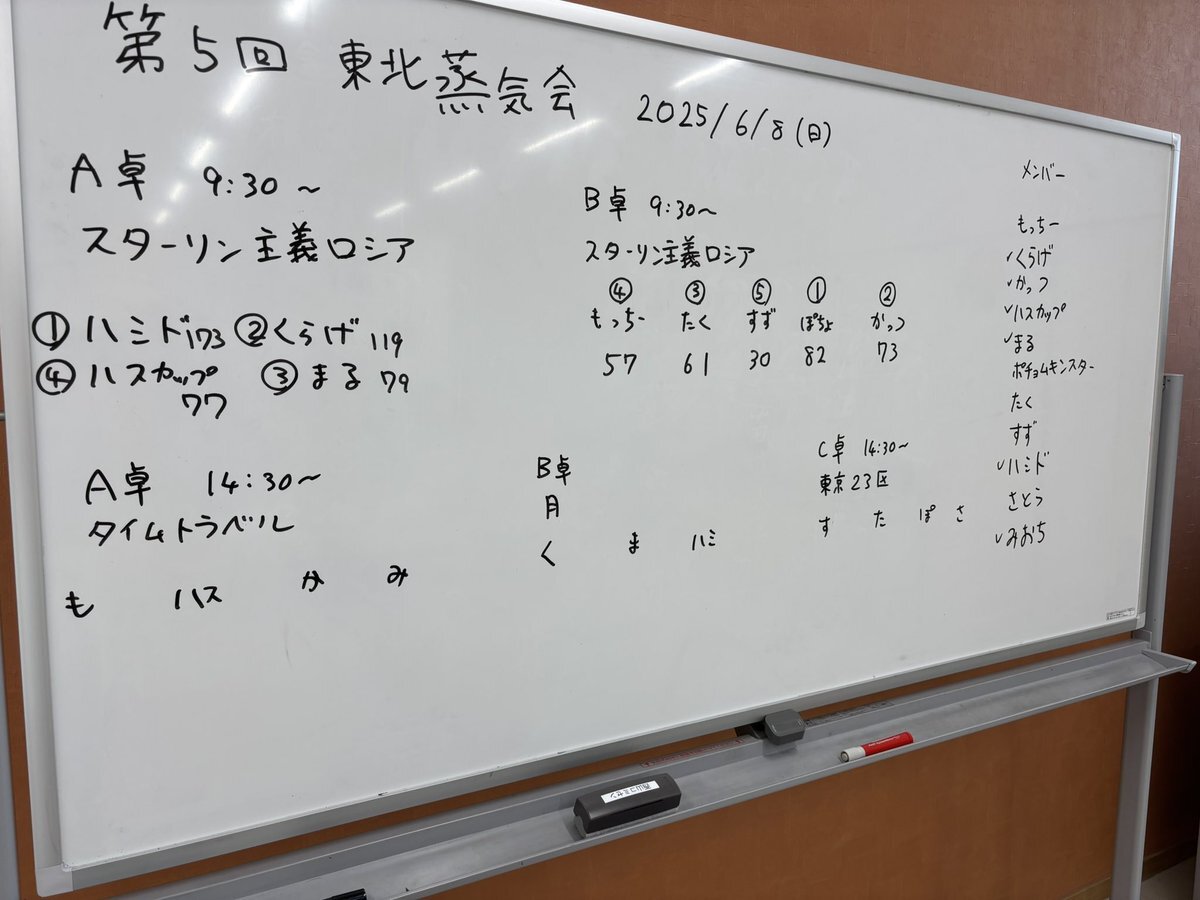 第5回 東北蒸気会 2025/6/8(日)
A卓 9:30〜
スターリン主義ロシア
①ハミド173 ②くらげ 119
④ハスカップ ③まる 79
77
B卓 9:30〜
スターリン主義ロシア
④ ③ ⑤ ① ②
もっちー たく すず ぽちょ かっつ
57 61 30 82 73
A卓 14:30〜
タイムトラベル
も ハス か み
B卓
月
く ま ハミ
C卓 14:30〜
東京23区
す た ぽ さ
メンバー
もっちー
✓くらげ
✓かっつ
✓ハスカップ
✓まる
ポチョムキンスター
たく
すず
✓ハミド
さとう
✓みおち